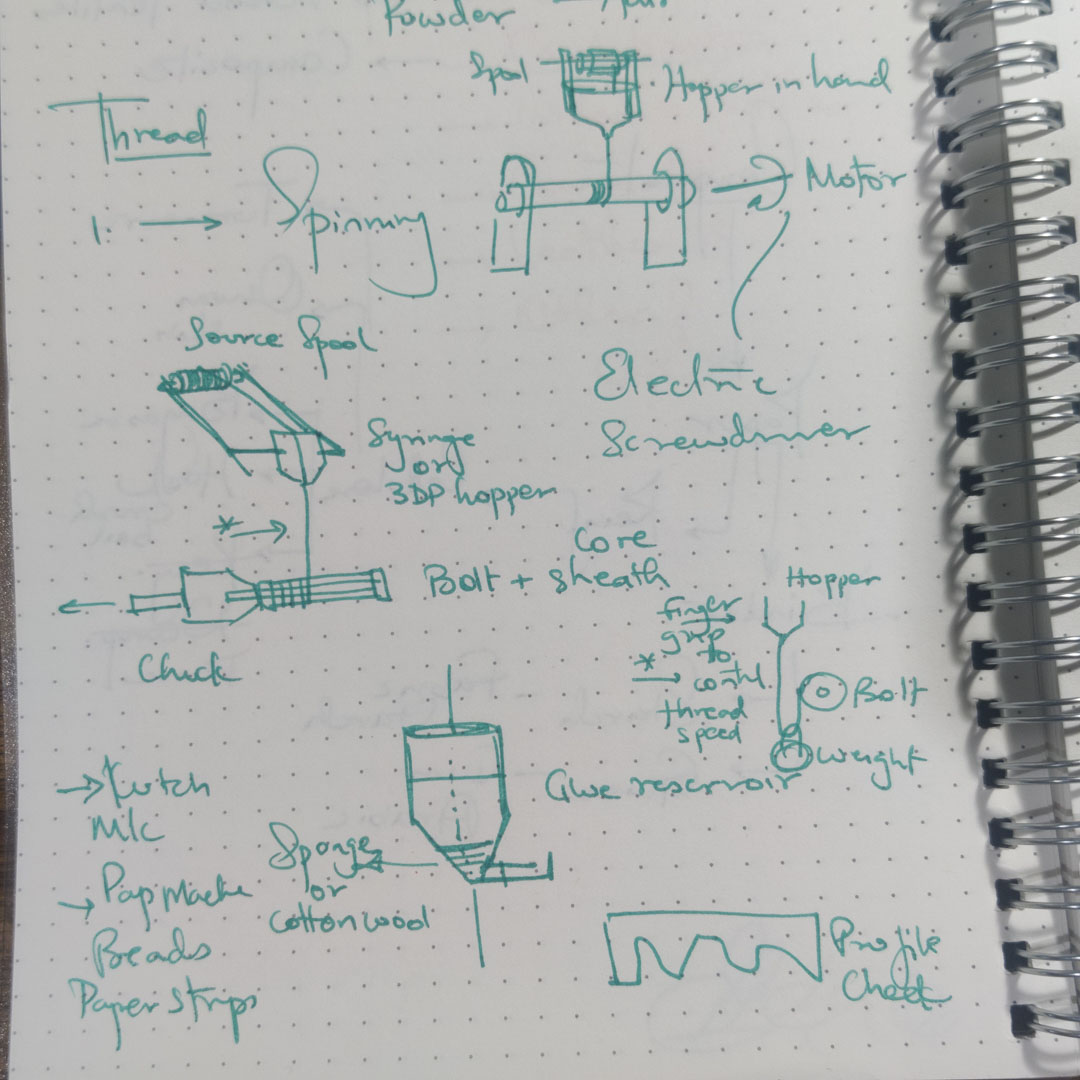 Powder
Thread
Spool
Hopper in hand
1. → Spinning
Motor
Electric
Screwdriver
Source Spool
Syringe
or
3DP hopper
* →
Bolt + Core
sheath
Chuck
Hopper
finger
grip
to
* contrl
thread
speed
Bolt
weight
Glue reservoir
Sponge
or
Cotton wool
M/c
→ Pap Mache
Beads
Paper strips
Profile
Check